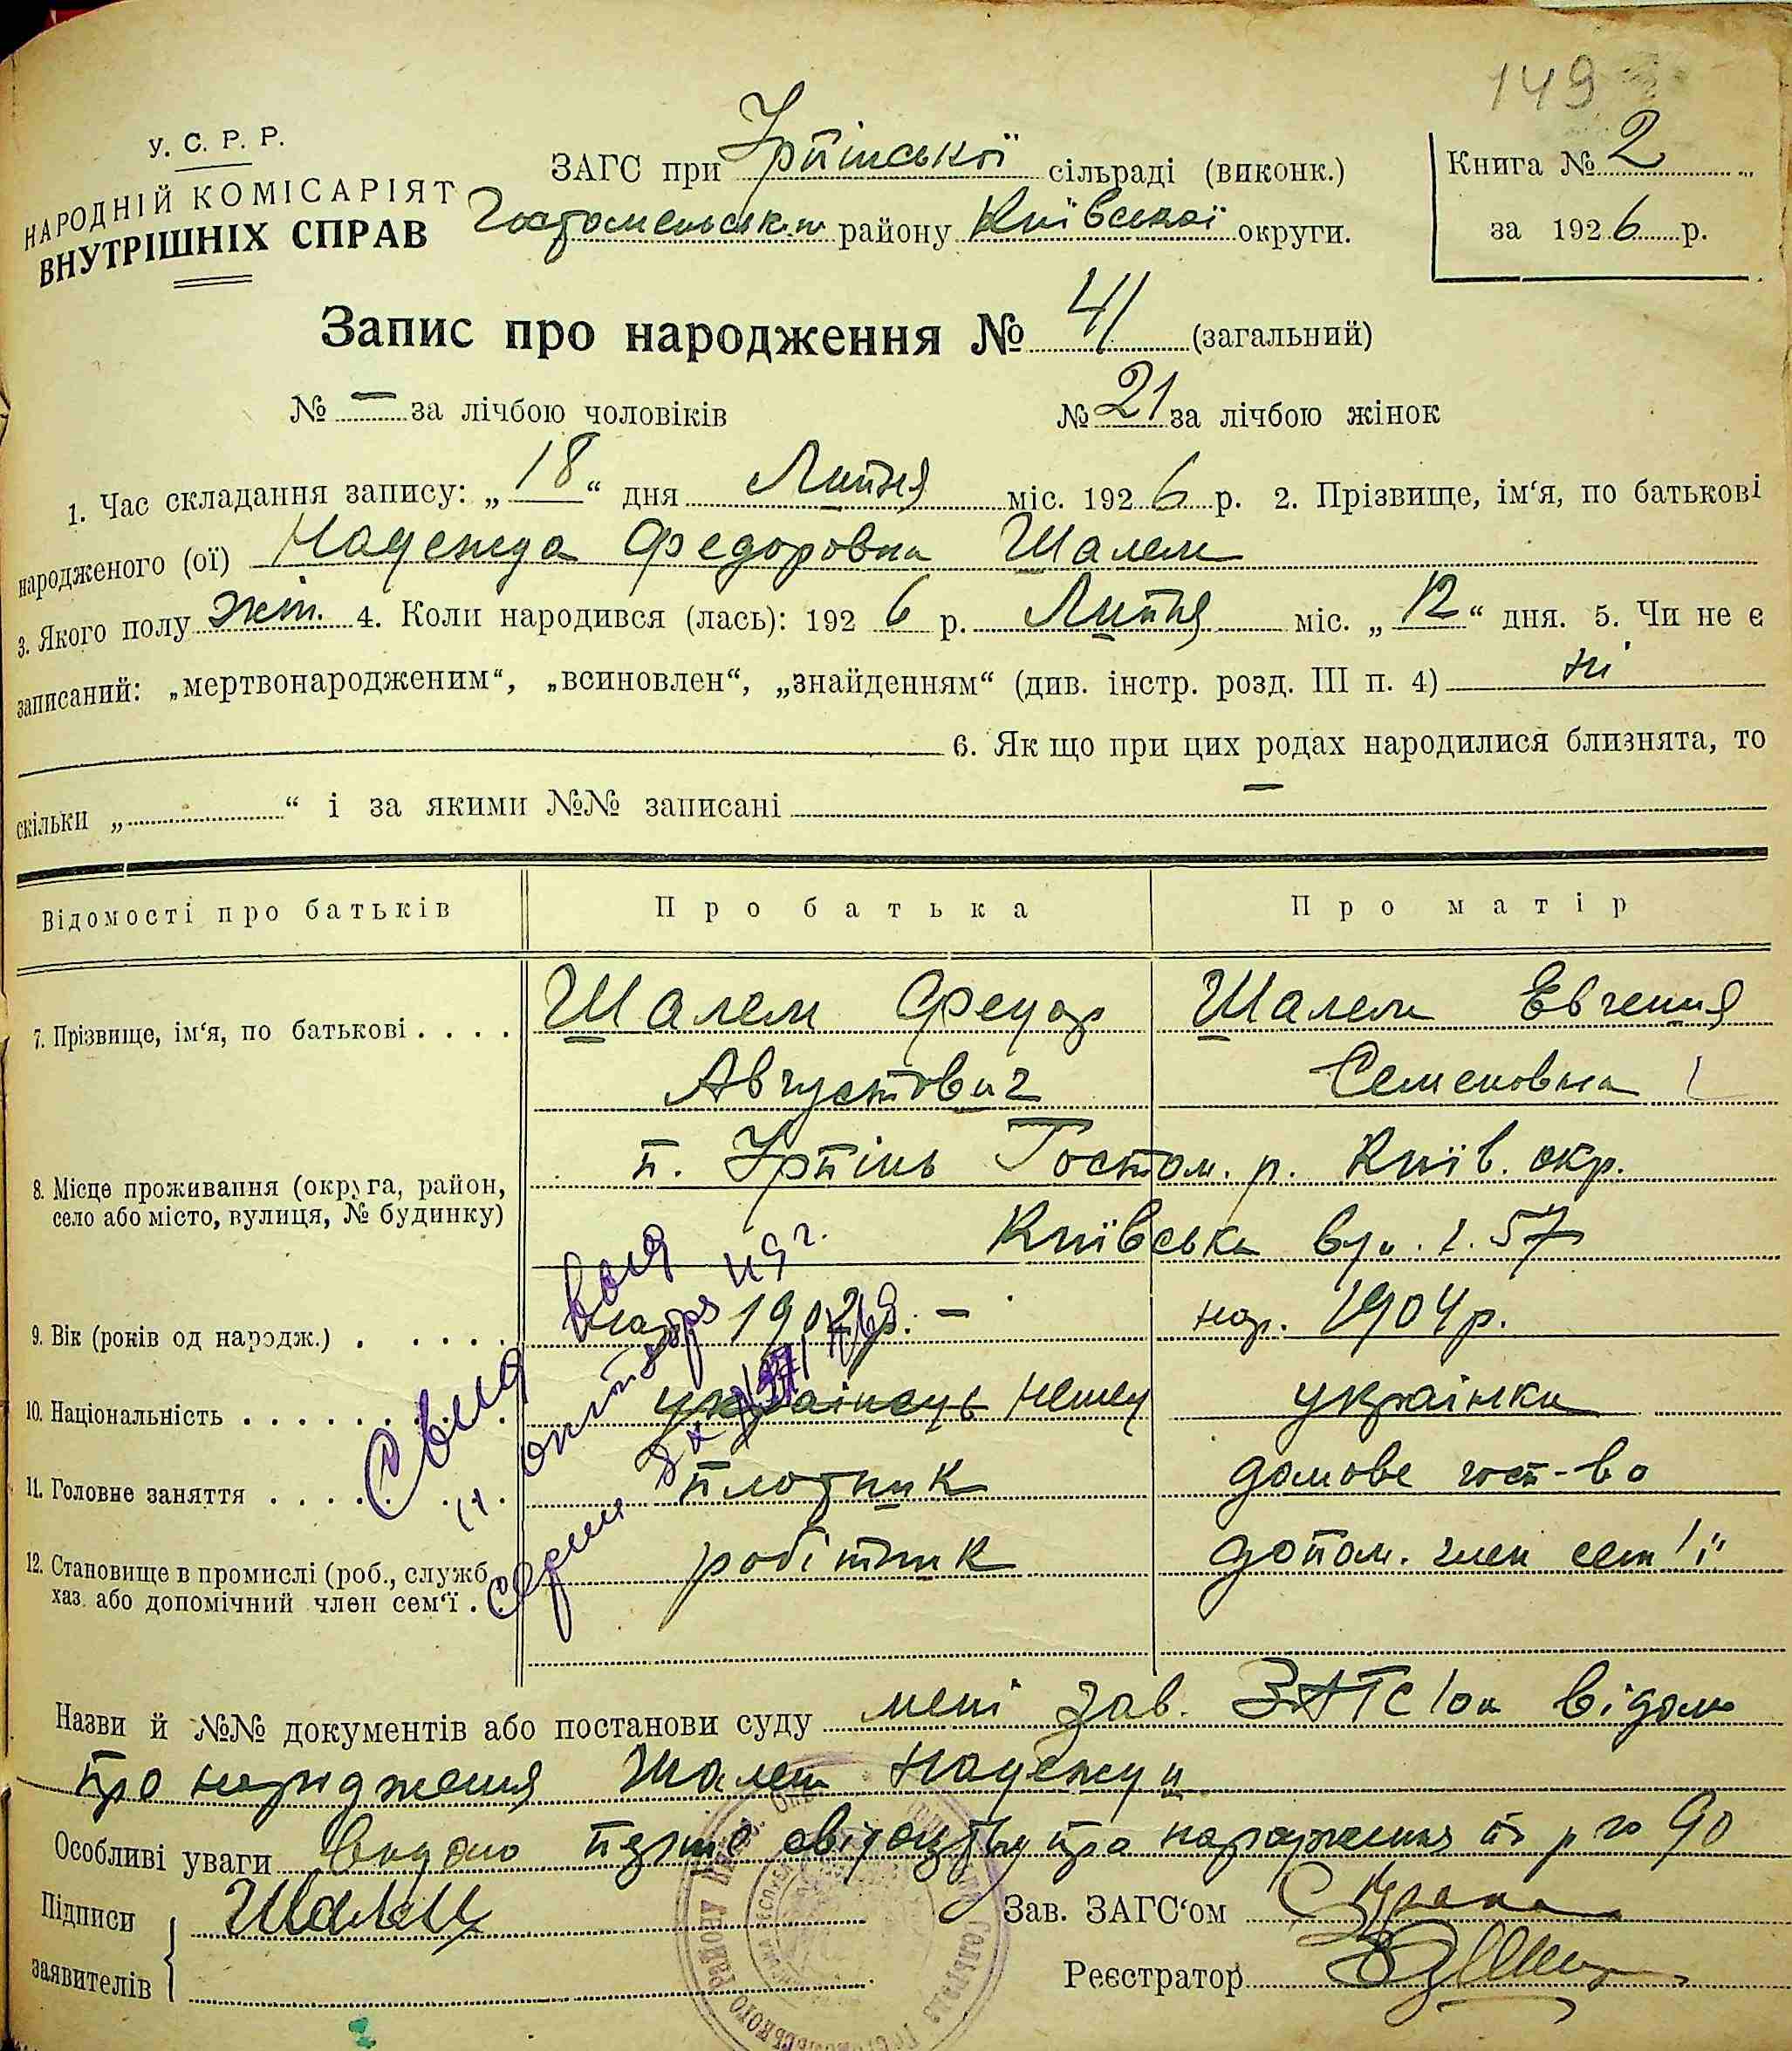 149
У. С. Р. Р.
НАРОДНІЙ КОМІСАРІЯТ
ВНУТРІШНІХ СПРАВ
ЗАГС при Ірпінської сільраді (виконк.)
Гостомельськ. району Київської округи.
Книга № 2
за 1926 р.
Запис про народження № 41 (загальний)
№ — за лічбою чоловіків № 21 за лічбою жінок
1. Час складання запису: „18“ дня Липня міс. 1926 р. 2. Прізвище, ім'я, по батькові
народженого (ої) Надежда Федоровна Шалем
3. Якого полу жін. 4. Коли народився (лась): 1926 р. Липня міс. „12“ дня. 5. Чи не є
записаний: „мертвонародженим“, „всиновлен“, „знайденням“ (див. інстр. розд. III п. 4) ні
6. Як що при цих родах народилися близнята, то
скільки „ “ і за якими №№ записані —
Відомості про батьків Про батька Про матір
7. Прізвище, ім'я, по батькові . . . . Шалем Федор Шалем Евгения
Августович Семеновна
8. Місце проживання (округа, район,
село або місто, вулиця, № будинку)
п. Ірпінь Гостом. р. Київ. окр.
Київська вул. 57
9. Вік (років од народж.) . . . . . 1902 р. — нар. 1904 р.
10. Національність українець немец українка
11. Головне заняття плотник домове госп-во
12. Становище в промислі (роб., служб.
хаз. або допомічний член сем'ї . . робітник допом. член сем'ї
Назви й №№ документів або постанови суду мені зав. ЗАГС'ом відомо
про народження Шалем Надежди
Особливі уваги Видано свідоцтво про народження 90
Підписи
заявителів
Шалем
Зав. ЗАГС'ом
Реєстратор